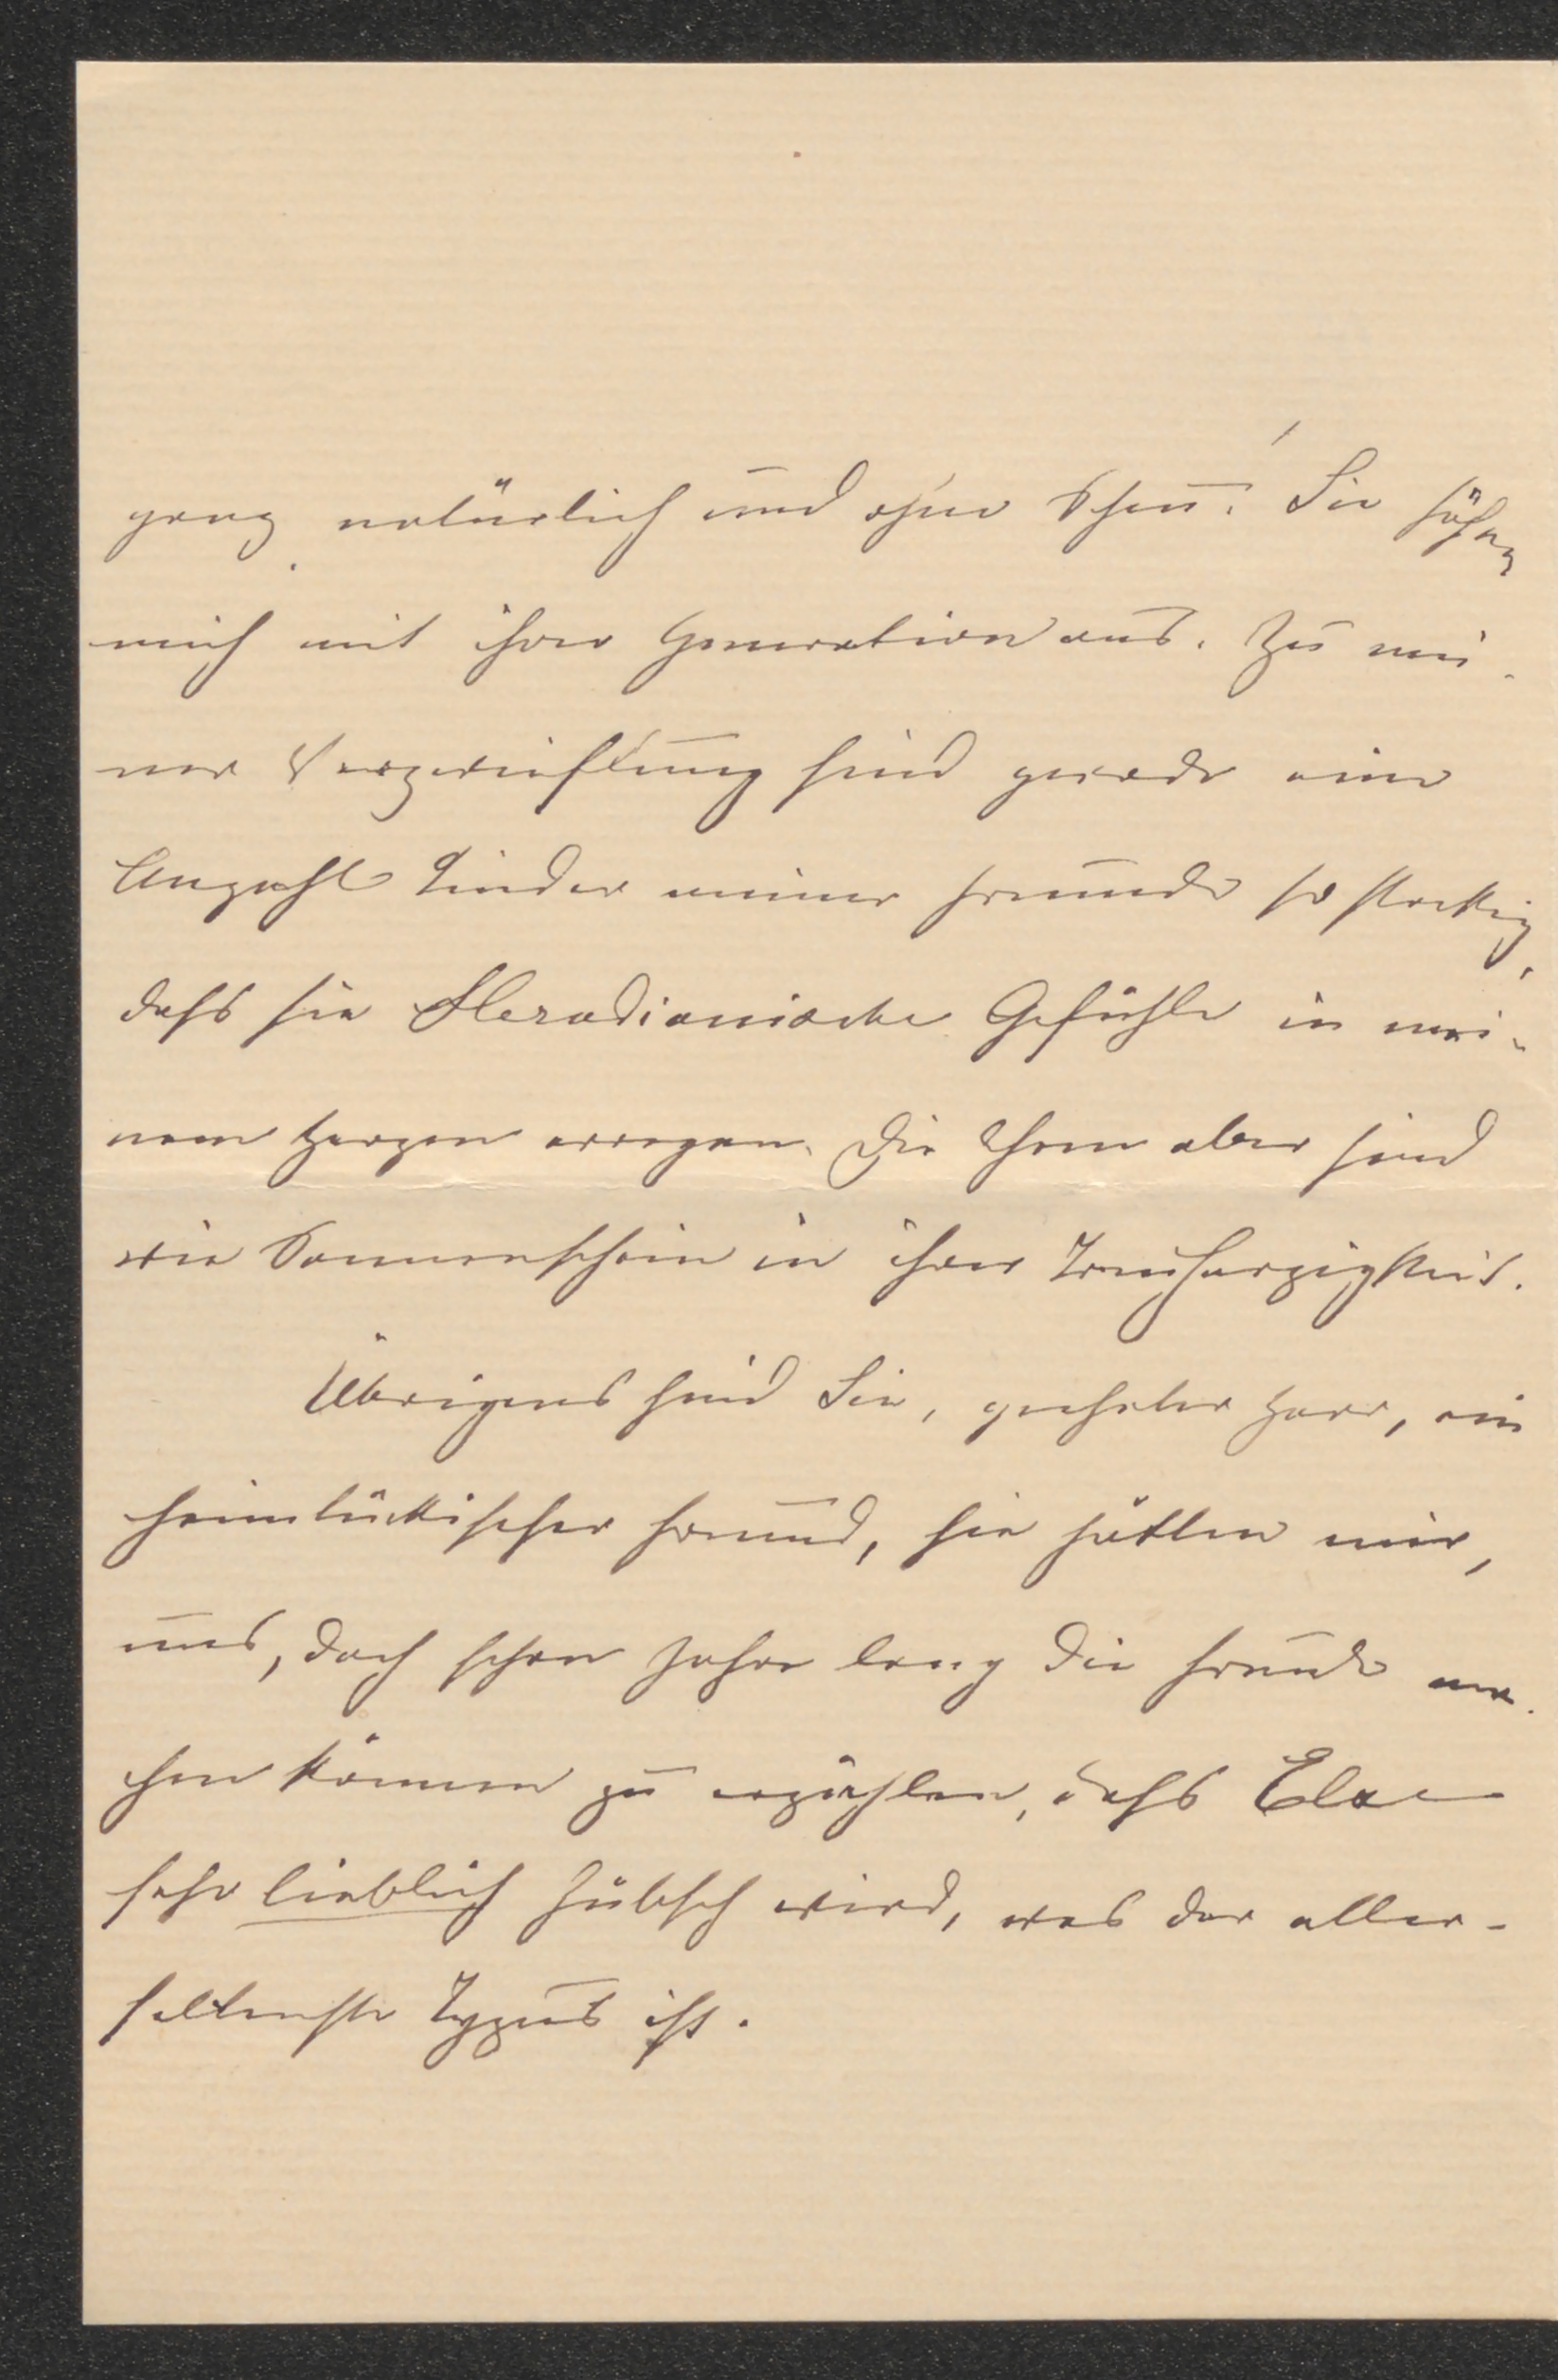 ganz natürlich und ohne Scheu. Sie söhnen
mich mit ihrer Generation aus. Zu mei-
ner Verzweiflung sind gerade eine
Anzahl Kinder meiner Freunde so stockig,
dass sie Herodianische Gefühle in mei-
nem Herzen erregen. Die Ihren aber sind
wie Sonnenschein in ihrer Treuherzigkeit.
Übrigens sind Sie, geehrter Herr, ein
heimtückischer Freund, sie hätten mir,
uns, doch schon Jahre lang die Freude ma-
chen können zu erzählen, dass Else
sehr lieblich hübsch wird, was der aller-
seltenste Typus ist.